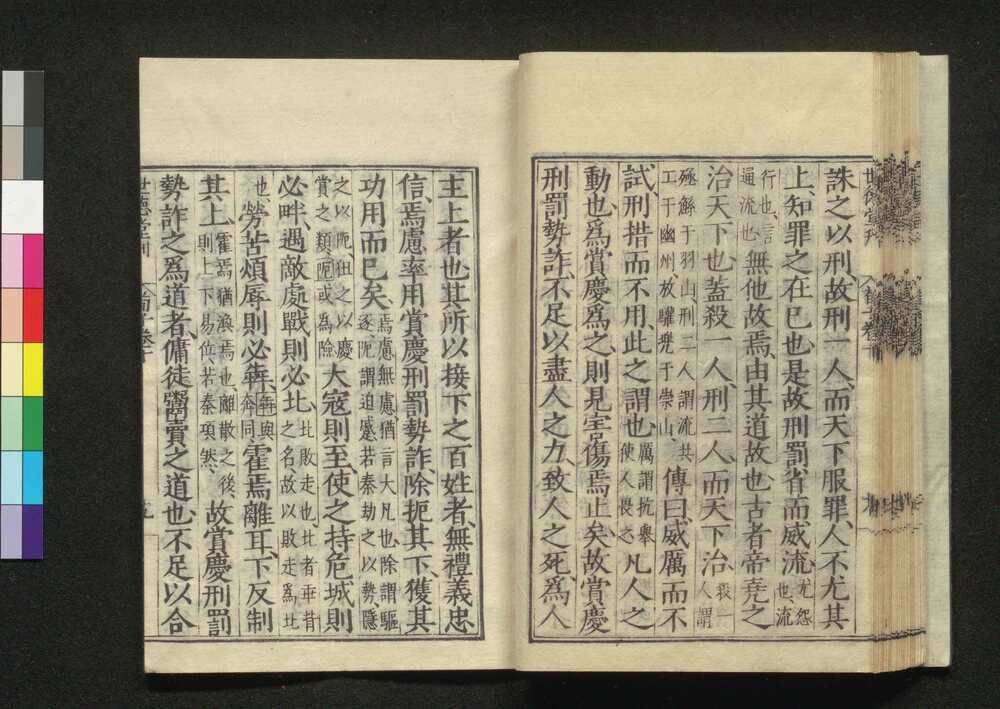 誅之以刑故刑一人而天下服罪人不尤其
上知罪之在已也是故刑罰省而威流尤怨也流
行也言通流也無他故焉由其道故也古者帝堯之
治天下也蓋殺一人刑二人而天下治殺一人謂
殛鯀于羽山刑二人謂流共工于幽州放驩兜于崇山傳曰威厲而不
試刑措而不用此之謂也厲謂抗舉使人畏之凡人之
動也爲賞慶爲之則見害傷焉止矣故賞慶
刑罰勢詐不足以盡人之力致人之死爲人
主上者也其所以接下之百姓者無禮義忠
信焉慮率用賞慶刑罰勢詐除扼其下獲其
功用而已矣焉慮無慮猶言大凡也除謂驅逐阨謂迫蹙若秦劫之以勢隱
之以阨狃之以慶賞之類阨或爲險大寇則至使之持危城則
必畔遇敵處戰則必北北敗走也北者乖背之名故以敗走爲北
也勞苦煩辱則必犇犇與奔同霍焉離耳下反制
其上霍焉猶渙焉也離散之後則上下易位若秦項然故賞慶刑罰
勢詐之爲道者傭徒鬻賣之道也不足以合
世德堂刊
荀子卷十
九